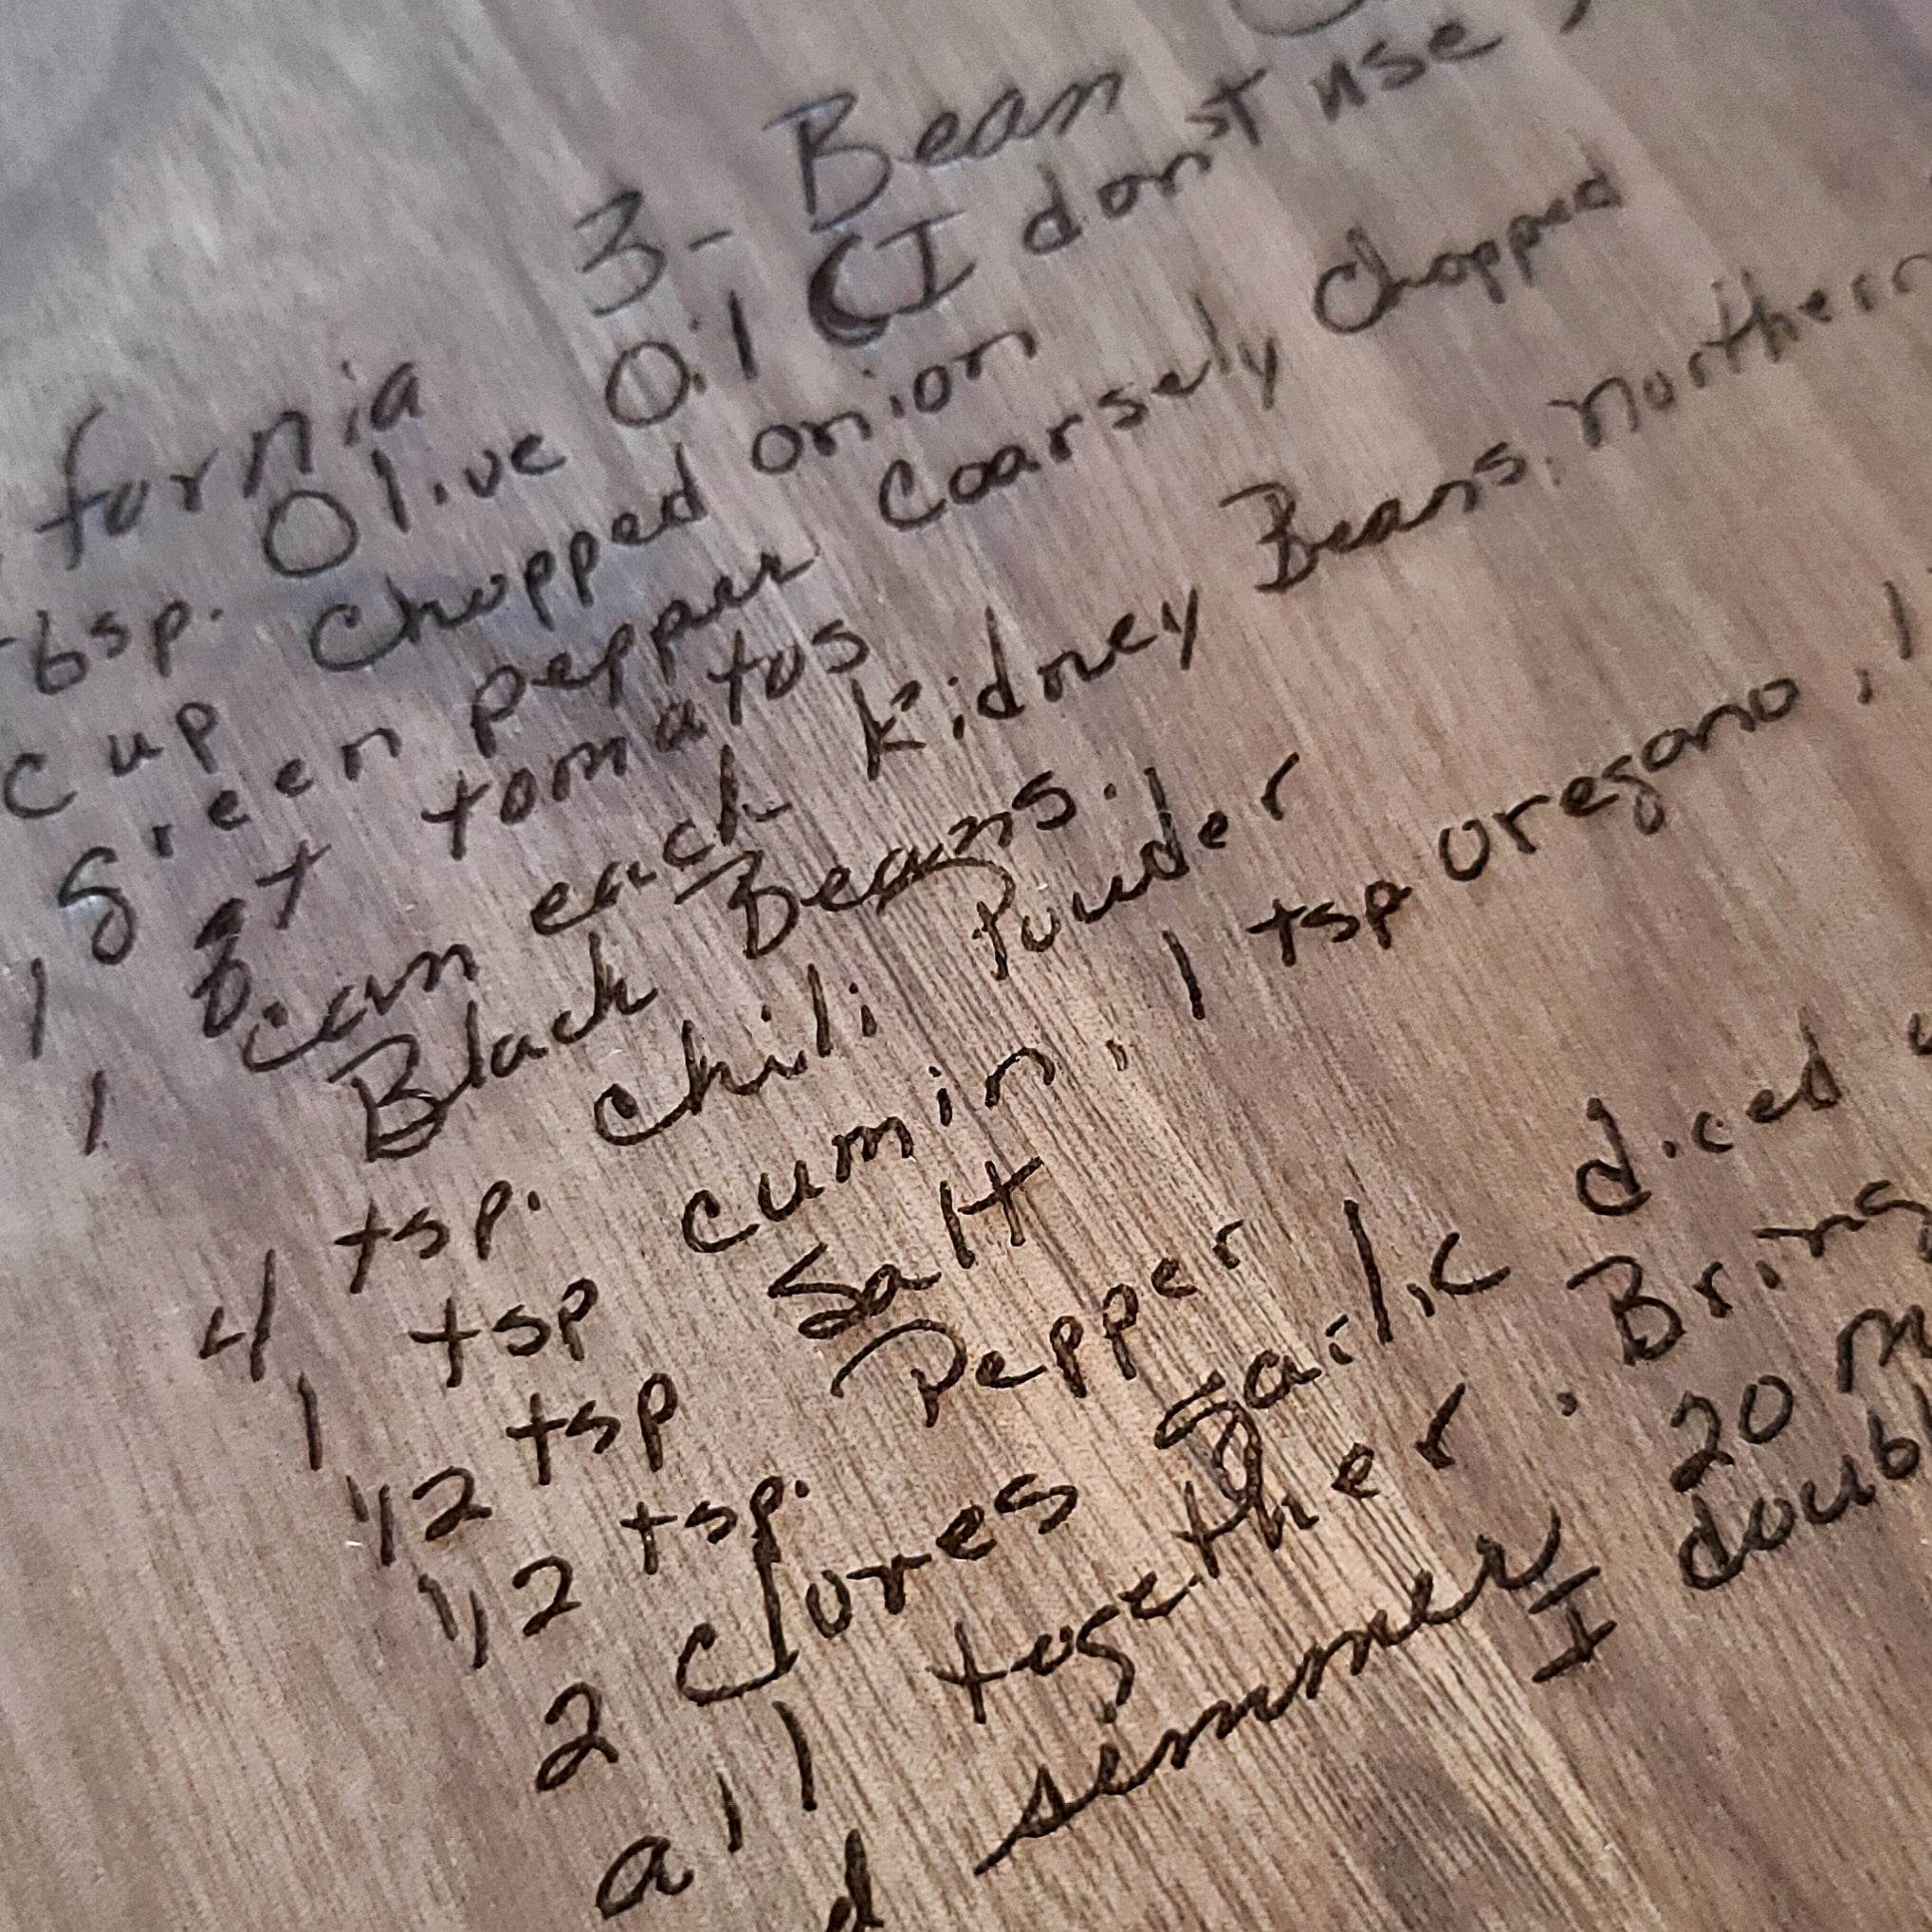 fornia 3- Bean
bsp. Olive Oil (I don't use
cup Chopped onion
1 green pepper coarsely chopped
1 qt tomatos
can each kidney Beans, northern
Black Beans.
4 tsp. chili Powder
1 tsp cumin, 1 tsp oregano, 1
1/2 tsp Salt
1/2 tsp. Pepper
2 cloves garlic diced
all together. Bring
d simmer 20 m
I doubl